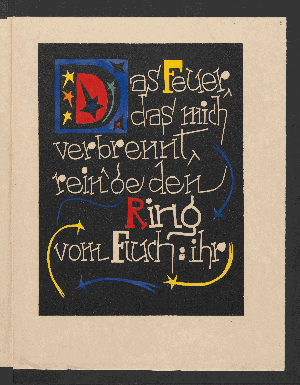 Das Feuer,
das mich
verbrennt,
rein'ge den
Ring
vom Fluch: ihr